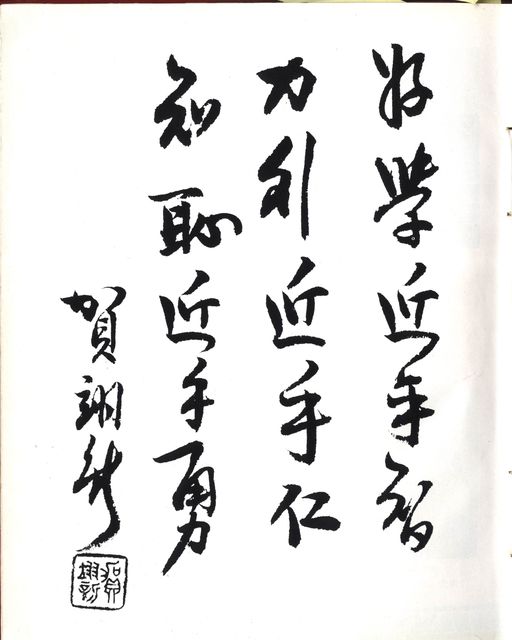 好學近乎智
力行近乎仁
知恥近乎勇
賀翊新
賀翊新